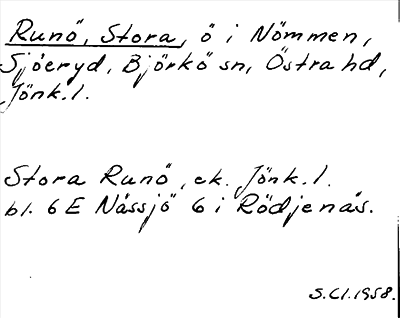 Runö, Stora, ö i Nömmen,
Sjöeryd, Björkö sn, Östra hd,
Jönk.l.
Stora Runö, ek. Jönk.l.
bl. 6 E Nässjö 6 i Rödjenäs.
S.Cl.1958.